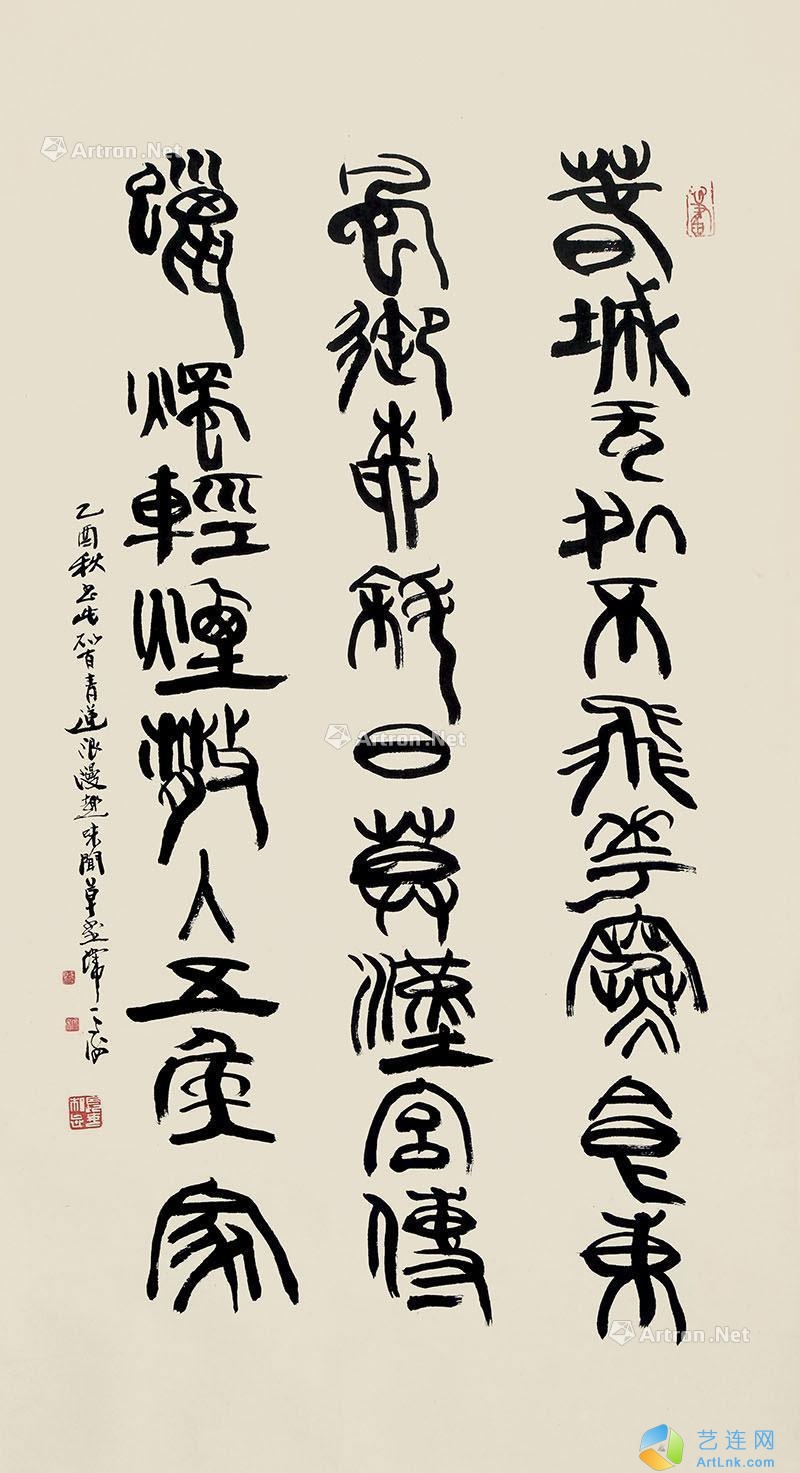 春城无處不飛花寒食東
風御柳斜日暮漢宮傳
蠟燭輕煙散入五侯家
乙酉秋书此 浪漫趣味聞草堂
Artron.Net
Artron.Net
Artron.Net
艺连网
ArtLnk.com